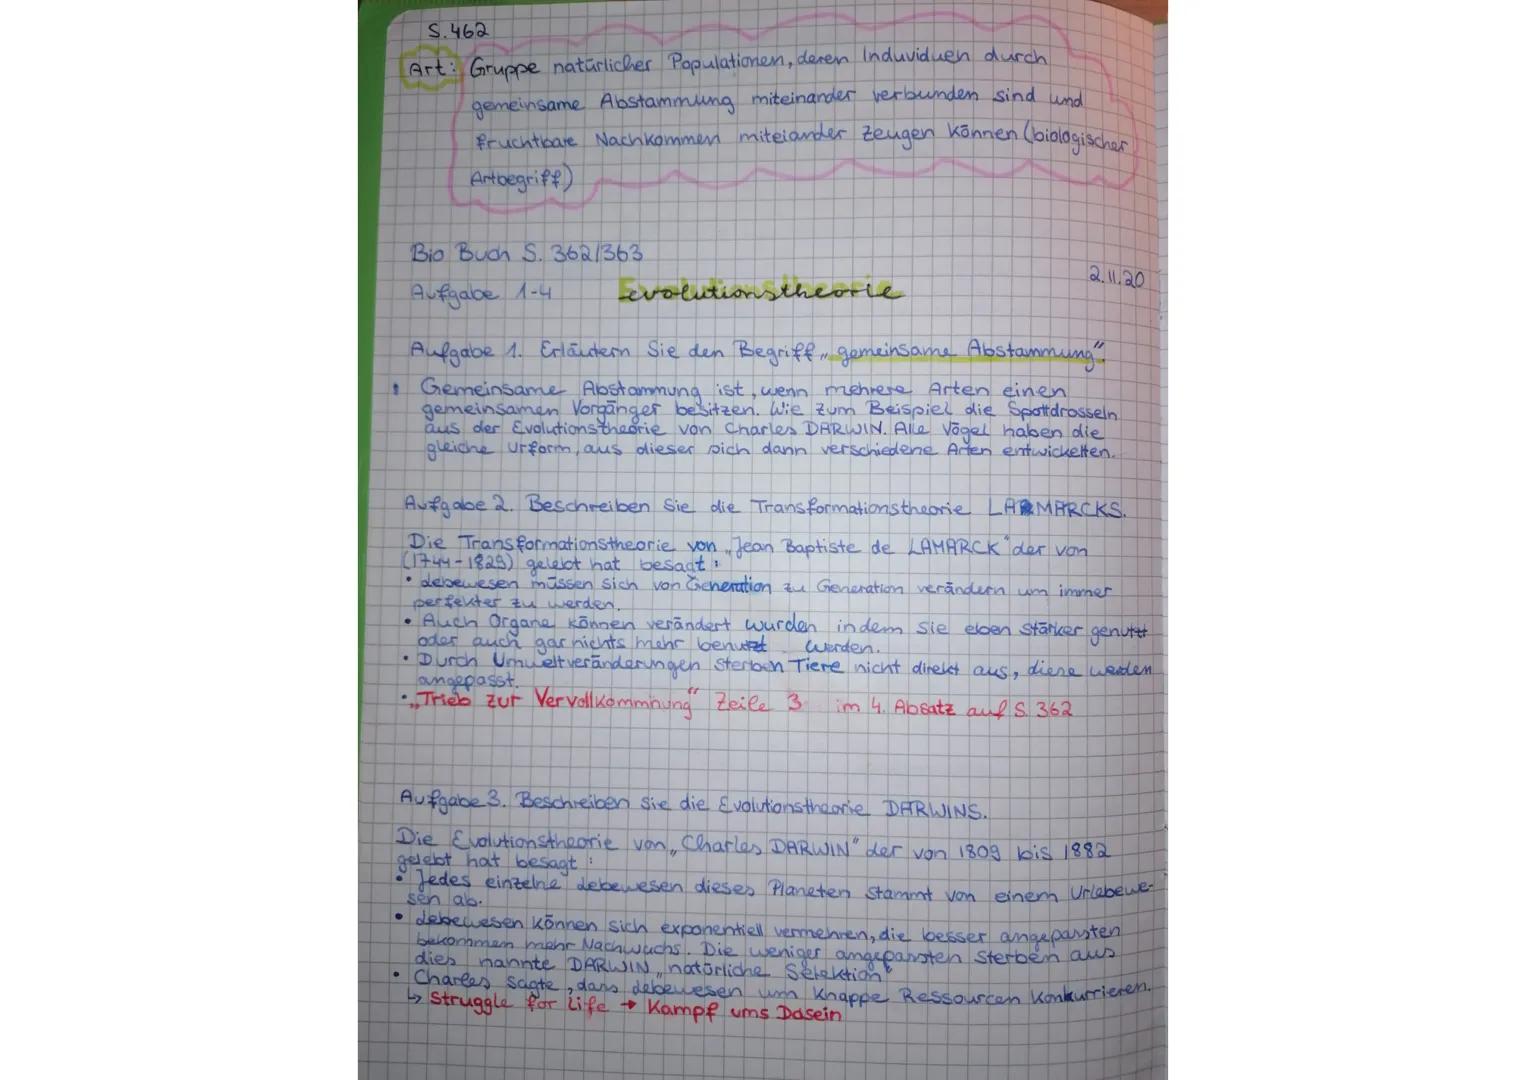 S. 462
Art: Gruppe natürlicher Populationen, deren Induviduen durch
gemeinsame Abstammung miteinander verbunden sind und
fruchtbare Nachkommen miteiander zeugen können (biologischer
Artbegriff)
Bio Buch S. 362/363
2.11.20
Aufgabe 1-4 Evolutionstheorie
Aufgabe 1. Erläutern Sie den Begriff „gemeinsame Abstammung".
Gemeinsame Abstammung ist, wenn mehrere Arten einen
gemeinsamen Vorgänger besitzen. Wie zum Beispiel die Spottdrosseln
aus der Evolutionstheorie von Charles DARWIN. Alle Vögel haben die
gleiche Urform, aus dieser sich dann verschiedene Arten entwickelten.
Aufgabe 2. Beschreiben Sie die Transformationstheorie LAMARCKS.
Die Transformationstheorie von „Jean Baptiste de LAMARCK" der von
(1744-1829) gelebt hat besagt:
• Lebewesen müssen sich von Generation zu Generation verändern um immer
perfekter zu werden.
• Auch Organe können verändert wurden indem sie eben stärker genutzt
oder auch gar nichts mehr benutzt werden.
• Durch Umweltveränderungen sterben Tiere nicht direkt aus, diese werden
angepasst.
• „Trieb zur Vervollkommnung" Zeile 3 im 4. Absatz auf S. 362
Aufgabe 3. Beschreiben Sie die Evolutionstheorie DARWINS.
Die Evolutionstheorie von „Charles DARWIN" der von 1809 bis 1882
gelebt hat besagt:
• Jedes einzelne Lebewesen dieses Planeten stammt von einem Urlebewe-
sen ab.
• Lebewesen können sich exponentiell vermehren, die besser angepassten
bekommen mehr Nachwuchs. Die weniger angepassten sterben aus
dies nannte DARWIN „natürliche Selektion"
• Charles sagte, dass Lebewesen um knappe Ressourcen konkurrieren.
↳ Struggle for Life → Kampf ums Dasein